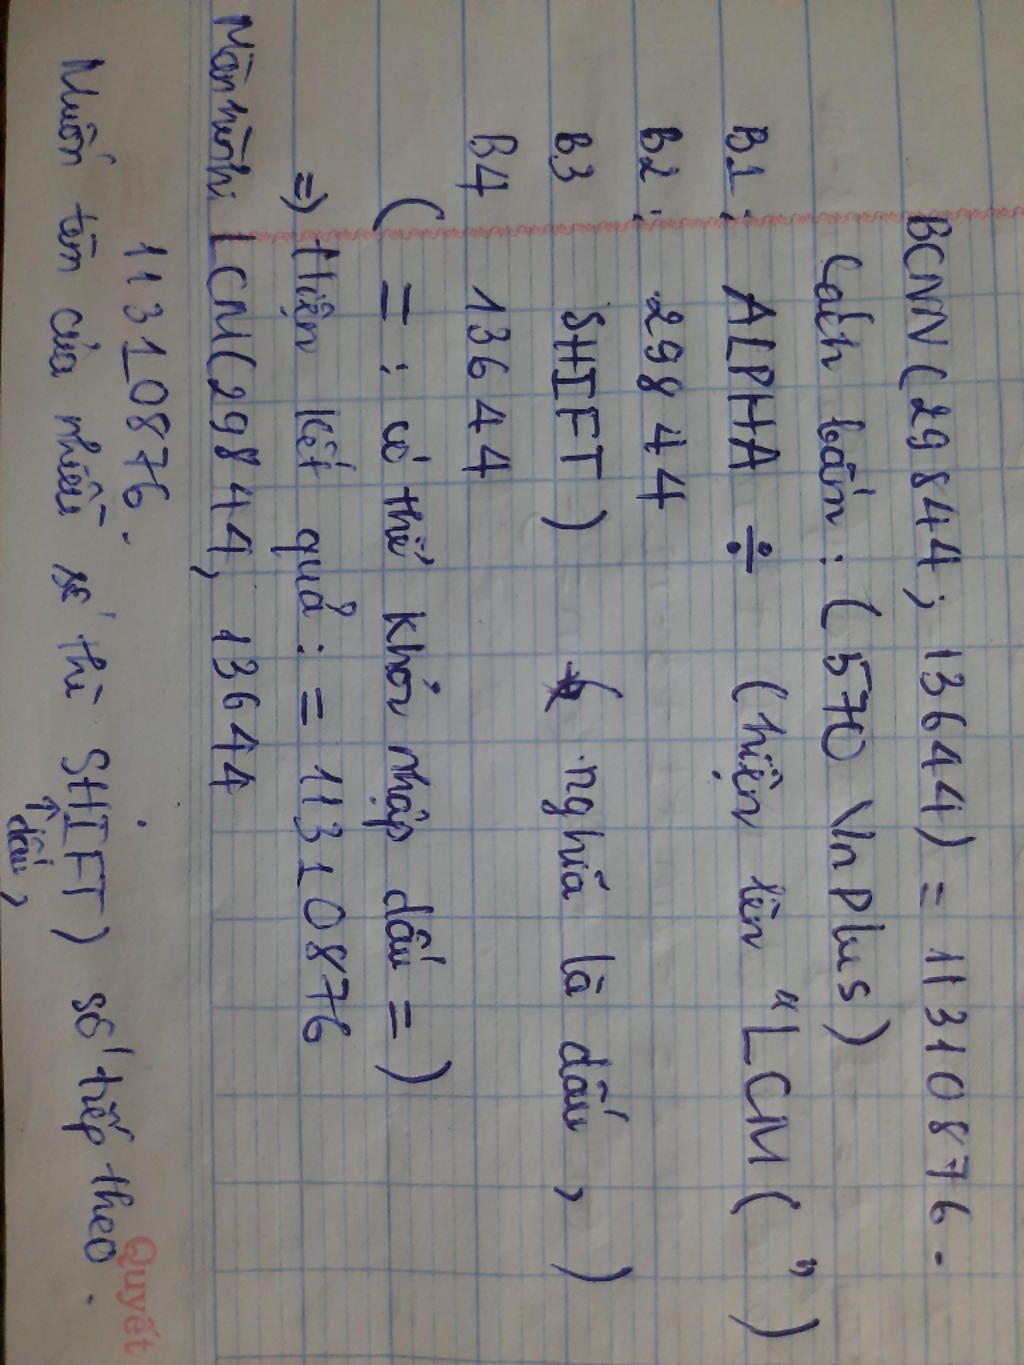 BCNN (29844; 13644) = 11310876.
Cách bấn: (570 Vn Plus)
B1: ALPHA ÷ (hiện lên "LCM(")
B2: 29844
B3 SHIFT) nghĩa là dấu , )
B4 13644
( = : có thể khỏi nhập dấu = )
=) Hiện kết quả : = 11310876
Màn hình LCM(29844, 13644
11310876.
Muốn tìm của nhiều số thì SHIFT) số tiếp theo.
↑
dấu,
Quyết